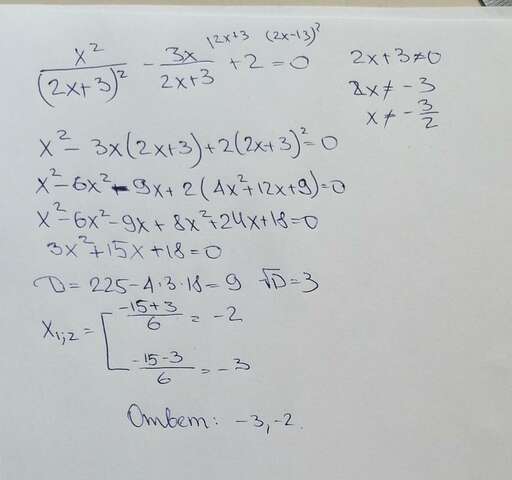 x²/(2x+3)² - 3x/(2x+3) |2x+3 + 2 (2x+3)² = 0
2x+3≠0
2x≠-3
x≠-3/2
x²-3x(2x+3)+2(2x+3)²=0
x²-6x²-9x+2(4x²+12x+9)=0
x²-6x²-9x+8x²+24x+18=0
3x²+15x+18=0
D=225-4·3·18=9 √D=3
x₁;₂= [ (-15+3)/6 = -2
(-15-3)/6 = -3
Ответ: -3, -2.